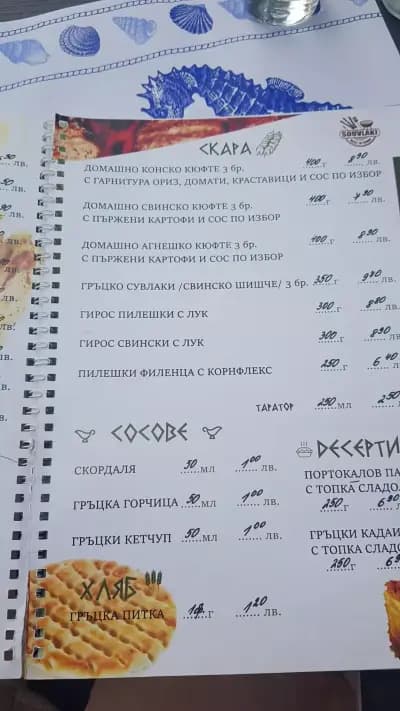 СКАРА
SOUVLAKI
ДОМАШНО КОНСКО КЮФТЕ 3 бр. 400 г 8 90 лв.
С ГАРНИТУРА ОРИЗ, ДОМАТИ, КРАСТАВИЦИ И СОС ПО ИЗБОР
ДОМАШНО СВИНСКО КЮФТЕ 3 бр. 400 г 7 90 лв.
С ПЪРЖЕНИ КАРТОФИ И СОС ПО ИЗБОР
ДОМАШНО АГНЕШКО КЮФТЕ 3 бр. 400 г 8 90 лв.
С ПЪРЖЕНИ КАРТОФИ И СОС ПО ИЗБОР
ГРЪЦКО СУВЛАКИ /СВИНСКО ШИШЧЕ/ 3 бр. 350 г лв.
ГИРОС ПИЛЕШКИ С ЛУК 300 г лв.
ГИРОС СВИНСКИ С ЛУК 300 г 8 90 лв.
ПИЛЕШКИ ФИЛЕНЦА С КОРНФЛЕКС 250 г 6 40
ТАРАТОР 250 мл 2 50
СОСОВЕ
СКОРДАЛЯ 50 мл 1 00 лв.
ГРЪЦКА ГОРЧИЦА 50 мл 1 00 лв.
ГРЪЦКИ КЕТЧУП 50 мл 1 00 лв.
ДЕСЕРТИ
ПОРТОКАЛОВ ПА
С ТОПКА СЛАДО
250 г
ГРЪЦКИ КАДАИ
С ТОПКА СЛАДО
250 г
ХЛЯБ
ГРЪЦКА ПИТКА г 1 20 лв.